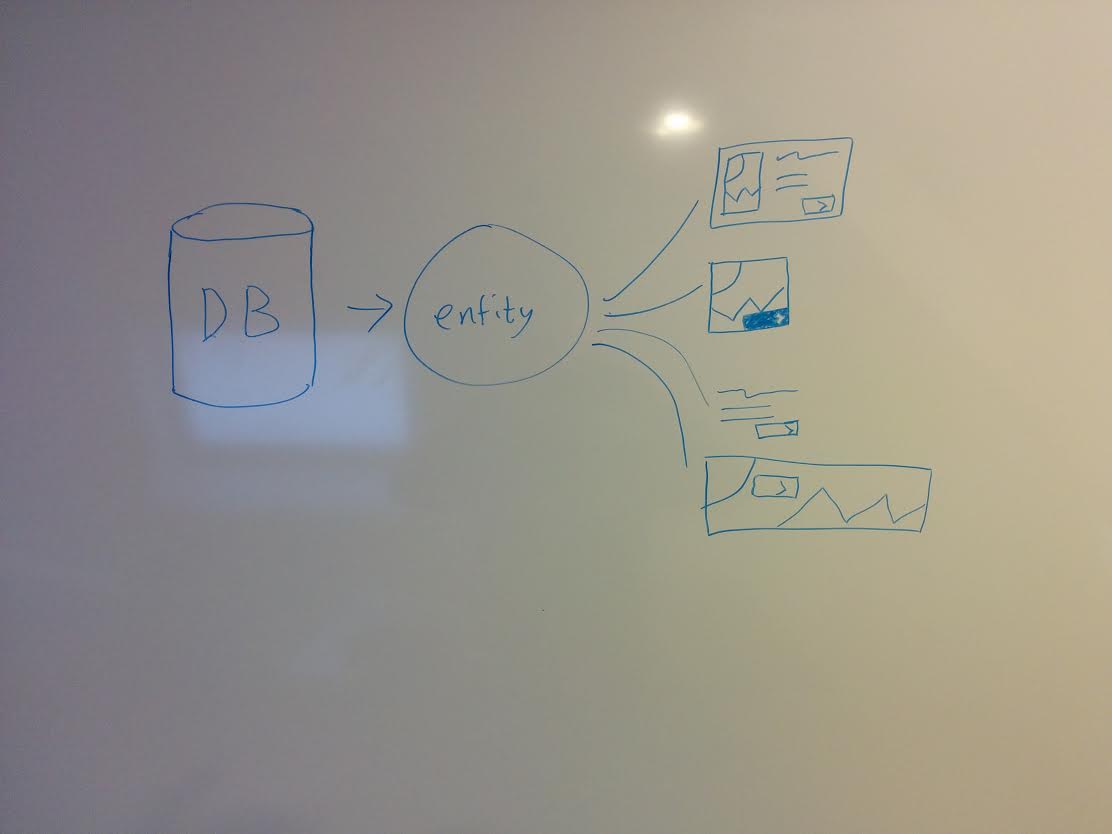 DB
entity